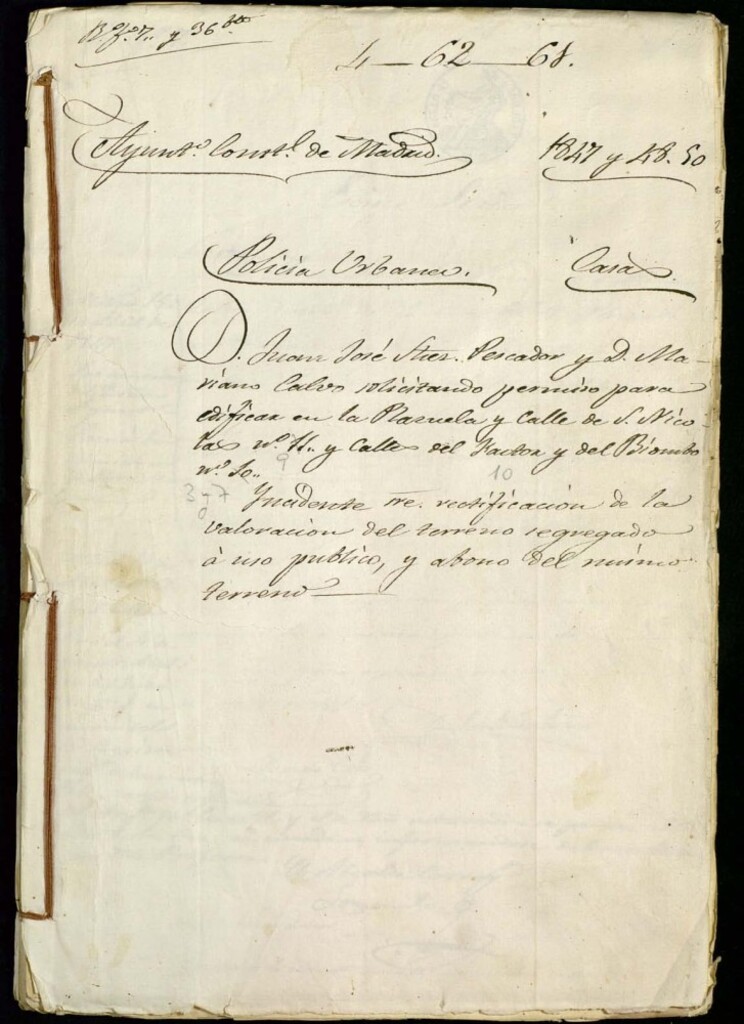 y 36
4 — 62 — 68.
Ayunt.º Const.l de Madrid.
1847 y 48. 50
Policia Urbana.
Casas.
D. Juan José Stres. Pescador y D. Ma-
riano Calvo solicitando permiso para
edificar en la Plazuela y Calle de S. Nico-
las nº. 11. y Calles del Factor y del Biombo
nº. 10..
9
10
3 y 7
Yncidente rectificacion de la
valoracion del terreno segregado
á uso publico, y abono del mismo
terreno